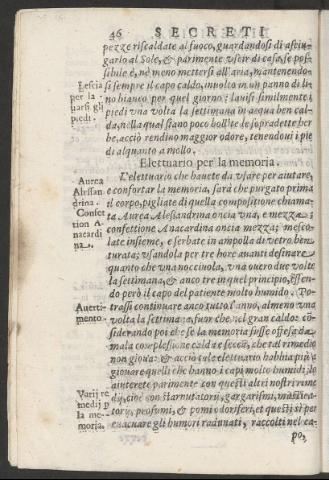 46 SECRETI
pezze riscaldate al fuoco, guardandosi di asciu-
garlo al Sole, & parimente uscir di casa, se pos
sibile è, nè meno mettersi all'aria, mantenendo-
si sempre il capo caldo, inuolto in un panno di li-
no bianco per quel giorno; lauisi similmente i
piedi una uolta la settimana in acqua ben cal
da, nella qual siano poco bollite le sopradette her
be, acciò rendino maggior odore, tenendoui i pie
di alquanto a mollo.
Lescia
per la
uarsi gli
piedi.
Elettuario per la memoria.
L'elettuario che hauete da usare per aiutare,
e confortar la memoria, sarà che purgato prima
il corpo, pigliate di quella compositione chiama-
ta Aurea Alessandrina oncia una, e mezza;
confettione Anacardina oncia mezza; mesco-
late insieme, e serbate in ampolla di vetro ben
turata; usandola per tre hore auanti desinare
quanto che una nocciuola, una ouero due uolte
la settimana, & anco tre in quel principio, essen-
do però il capo del patiente molto humido. Po-
trassi continuare anco tutto l'anno, almeno una
uolta la settimana, fuor che nel gran caldo: con
siderando poi che se la memoria fusse offesa da
mala complessione calda e secca, che tal rimedio
non gioua: & acciò tale elettuario habbia più a
giouare quelli che hanno i capi molto humidi,
aiuterete parimente con questi altri nostri rime
dij, cioè con starnutatorij, gargarismi, mastica
torij, profumi, & pomi odoriferi, et questi si per
euacuare gli humori radunati, raccolti nel ca-
Aurea
Alessan
drina.
Confet
tion A-
nacardi
na.
Auerti-
mento.
Varij re
medij p
la me-
moria.
po,